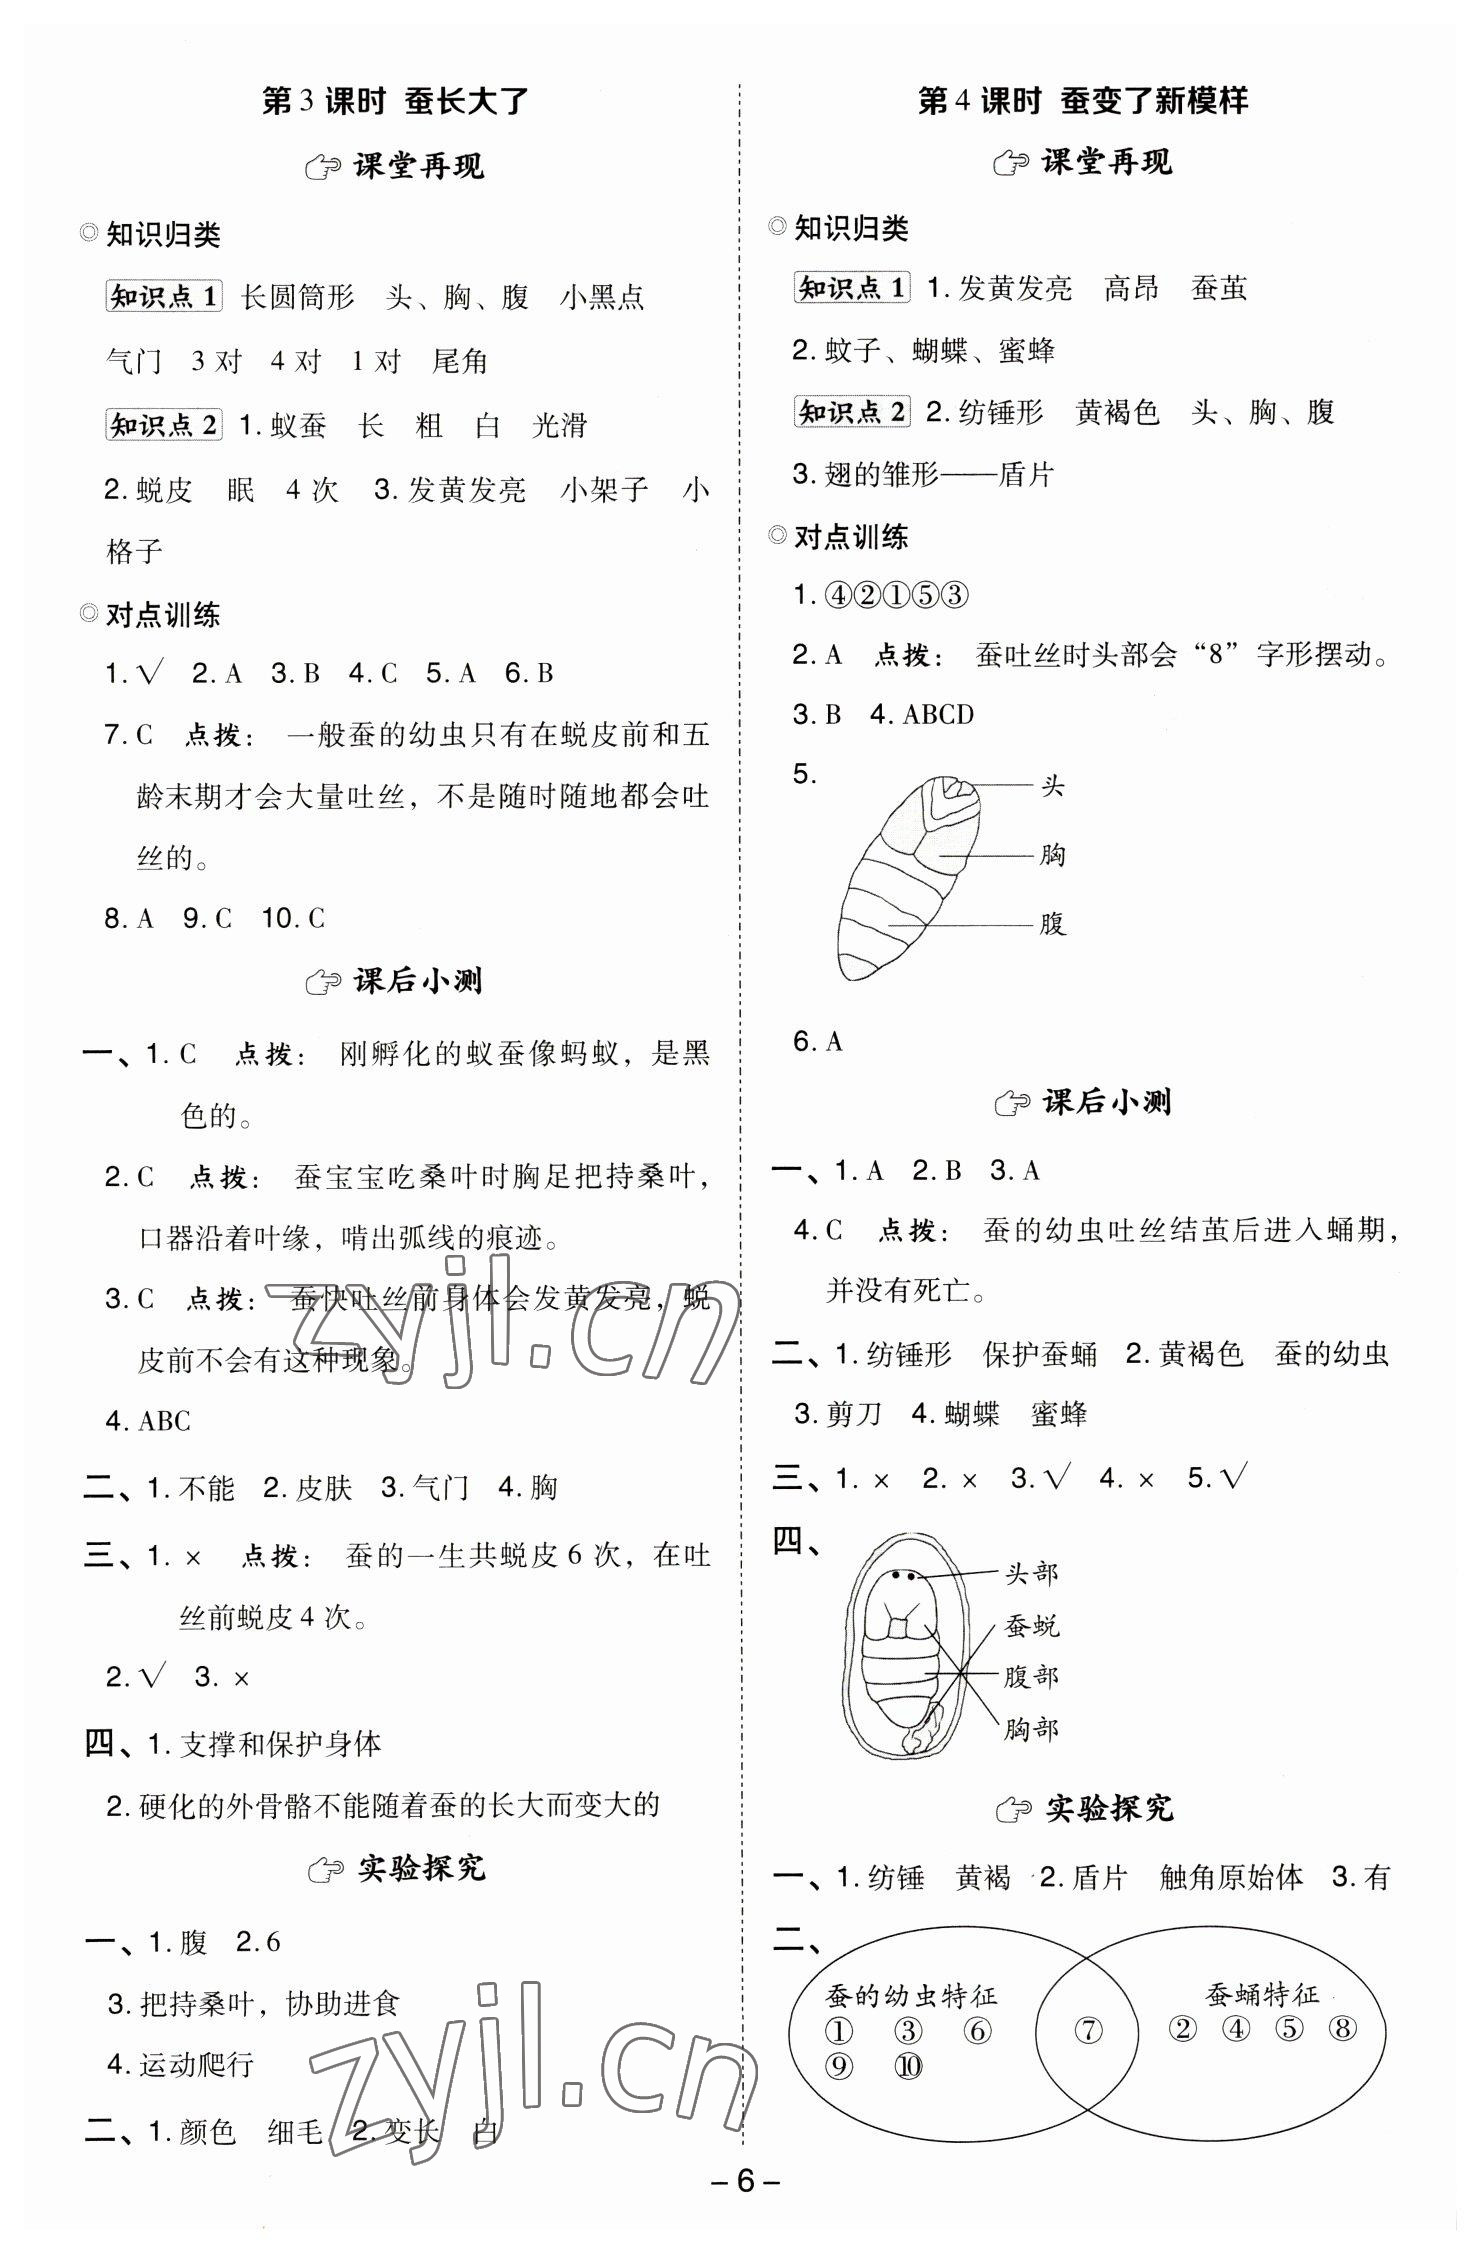 第 3 课时 蚕长大了
课堂再现
知识归类
知识点 1 长圆筒形 头、胸、腹 小黑点
气门 3 对 4 对 1 对 尾角
知识点 2 1. 蚁蚕 长 粗 白 光滑
2. 蜕皮 眠 4 次 3. 发黄发亮 小架子 小
格子
对点训练
1. √ 2. A 3. B 4. C 5. A 6. B
7. C 点拨： 一般蚕的幼虫只有在蜕皮前和五
龄末期才会大量吐丝，不是随时随地都会吐
丝的。
8. A 9. C 10. C
课后小测
一、1. C 点拨： 刚孵化的蚁蚕像蚂蚁，是黑
色的。
2. C 点拨： 蚕宝宝吃桑叶时胸足把持桑叶，
口器沿着叶缘，啃出弧线的痕迹。
3. C 点拨： 蚕快吐丝前身体会发黄发亮，蜕
皮前不会有这种现象。
4. ABC
二、1. 不能 2. 皮肤 3. 气门 4. 胸
三、1. × 点拨： 蚕的一生共蜕皮 6 次，在吐
丝前蜕皮 4 次。
2. √ 3. ×
四、1. 支撑和保护身体
2. 硬化的外骨骼不能随着蚕的长大而变大的
实验探究
一、1. 腹 2. 6
3. 把持桑叶，协助进食
4. 运动爬行
二、1. 颜色 细毛 2. 变长 白
zyjl.cn
zyjl.cn
第 4 课时 蚕变了新模样
课堂再现
知识归类
知识点 1 1. 发黄发亮 高昂 蚕茧
2. 蚊子、蝴蝶、蜜蜂
知识点 2 2. 纺锤形 黄褐色 头、胸、腹
3. 翅的雏形——盾片
对点训练
1. ④②①⑤③
2. A 点拨： 蚕吐丝时头部会“8”字形摆动。
3. B 4. ABCD
5.
头
胸
腹
6. A
课后小测
一、1. A 2. B 3. A
4. C 点拨： 蚕的幼虫吐丝结茧后进入蛹期，
并没有死亡。
二、1. 纺锤形 保护蚕蛹 2. 黄褐色 蚕的幼虫
3. 剪刀 4. 蝴蝶 蜜蜂
三、1. × 2. × 3. √ 4. × 5. √
四、
头部
蚕蜕
腹部
胸部
实验探究
一、1. 纺锤 黄褐 2. 盾片 触角原始体 3. 有
二、
蚕的幼虫特征 蚕蛹特征
① ③ ⑥ ⑦ ② ④ ⑤ ⑧
⑨ ⑩
– 6 –